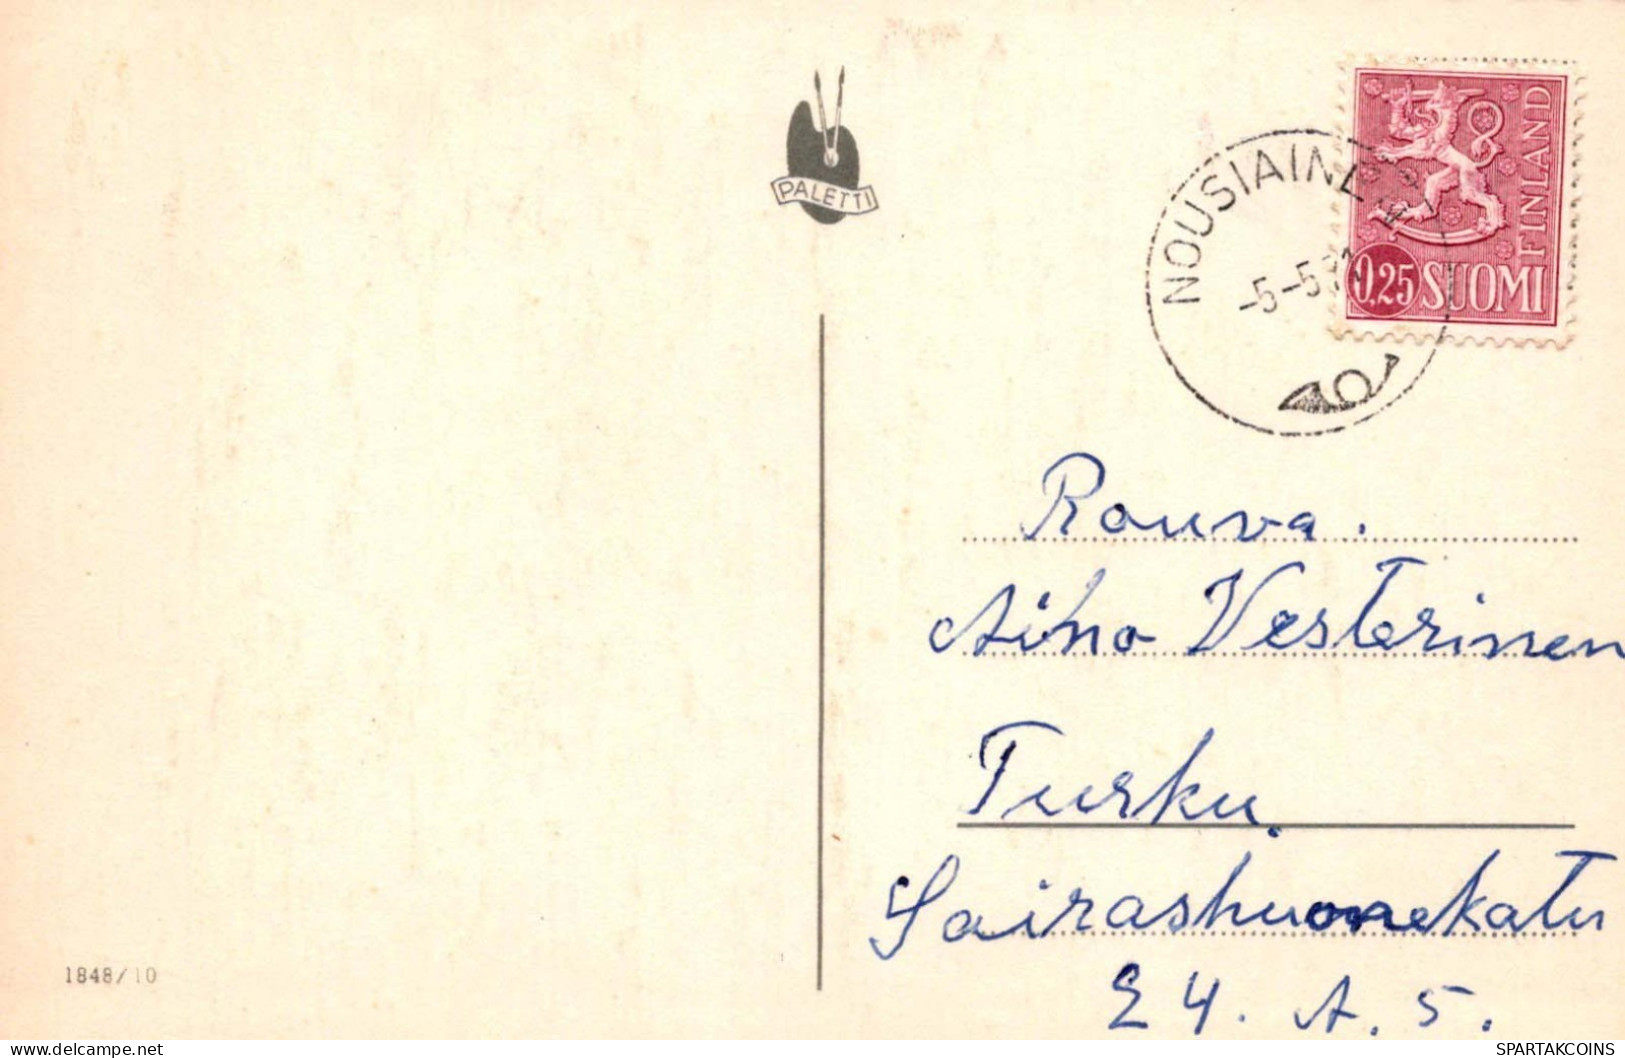 PALETTI
NOUSIAINEN
-5-5
FINLAND
0,25 SUOMI
Rouva.
Aino Vesterinen
Turku.
Sairashuonekatu
24. A. 5.
1848/10
delcampe.net
SPARTAKCOINS